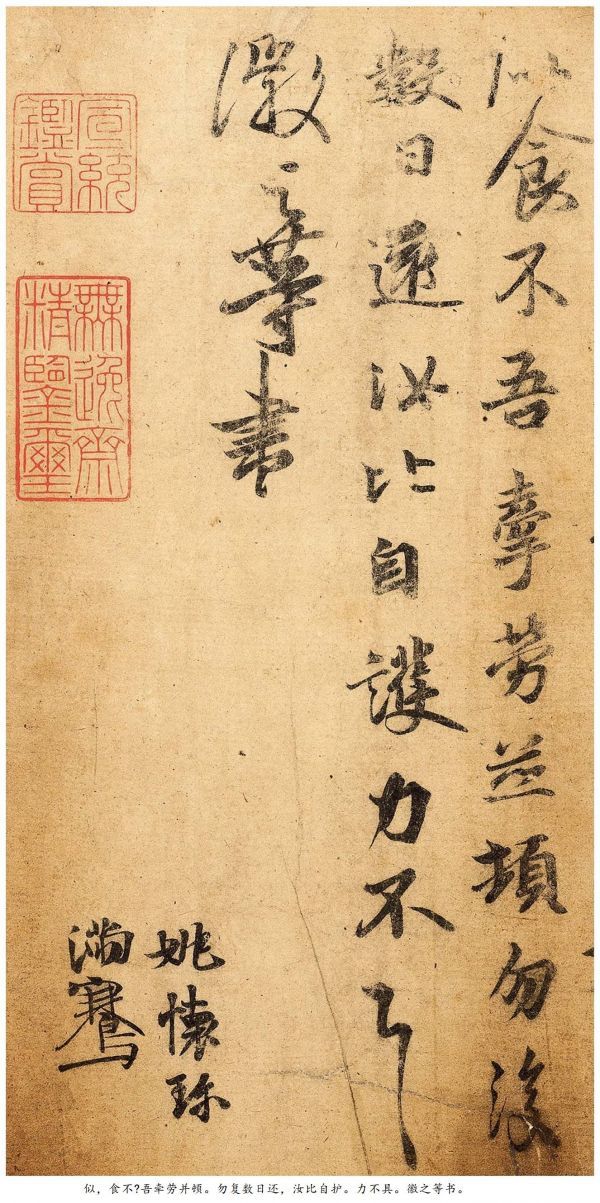 似食不吾牽勞並頓勿復
數日還汝比自護力不具
徽之等書
姚懷珍
滿騫
宣統鑑賞
無逸齋精鑒璽
似，食不?吾牵劳并顿。勿复数日还，汝比自护。力不具。徽之等书。